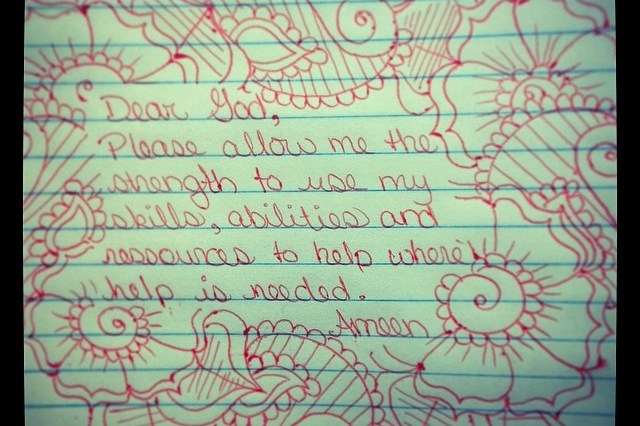 Dear God,
Please allow me the
strength to use my
skills, abilities and
ressources to help where
help is needed.
Ameen